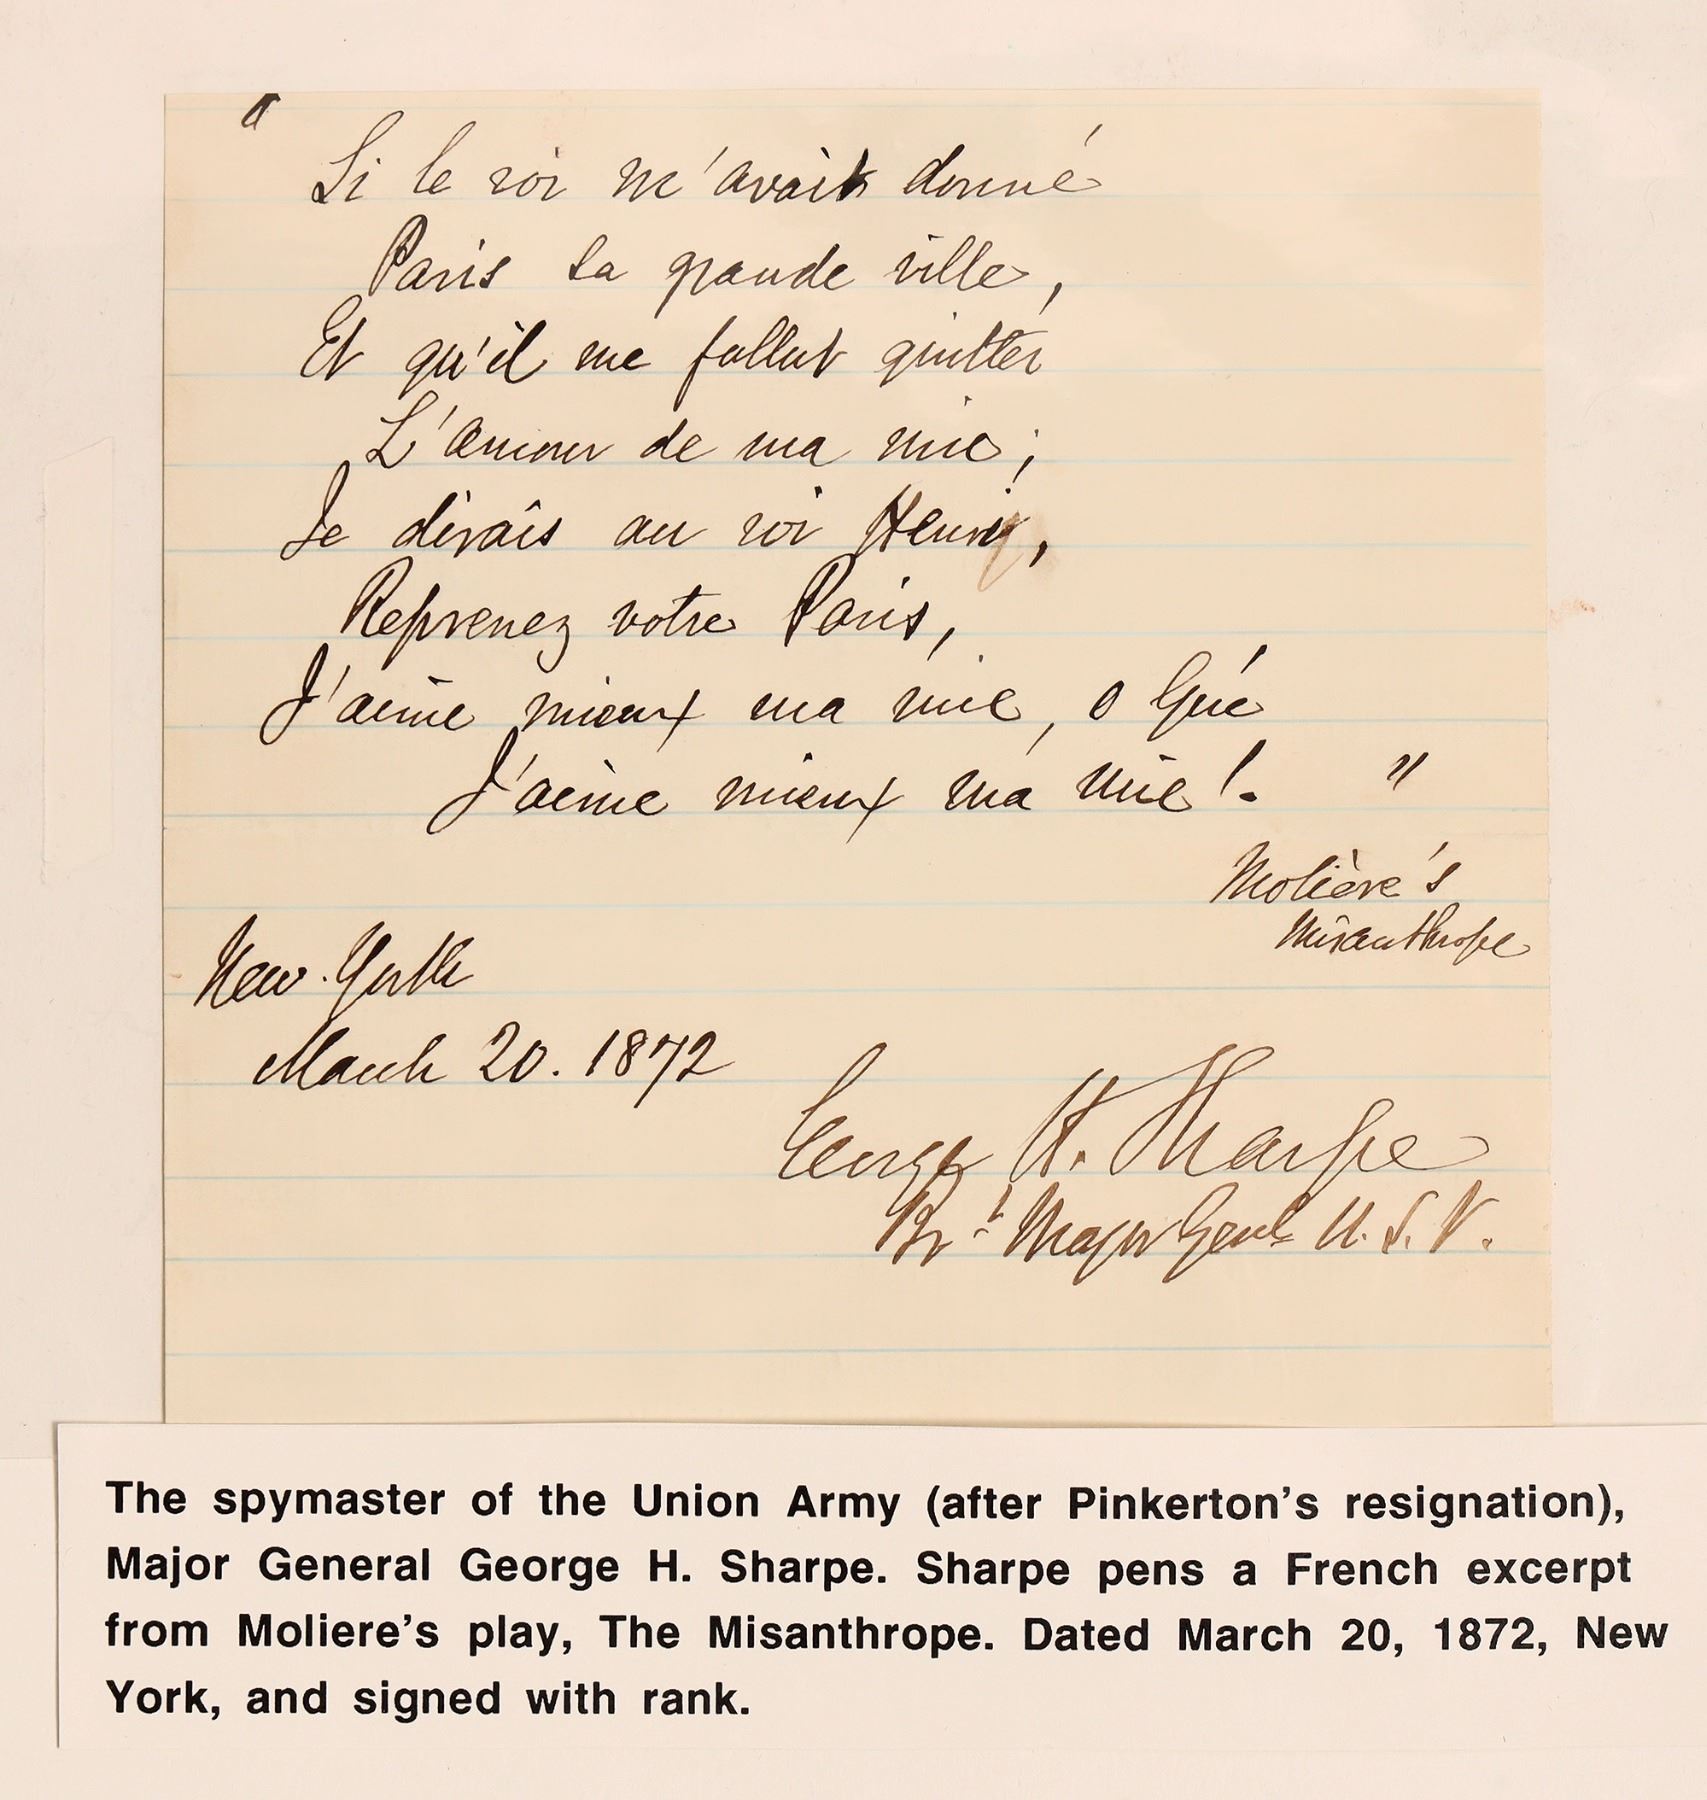 "
Si le roi m'avait donné
Paris sa grande ville,
Et qu'il me fallut quitter
L'amour de ma mie;
Je dirais au roi Henri,
Reprenez votre Paris,
J'aime mieux ma mie, o Gué
J'aime mieux ma mie!. "
Molière's
Misanthrope
New York
March 20. 1872
George H. Sharpe
Bvt Major Genl U.S.V.
The spymaster of the Union Army (after Pinkerton's resignation),
Major General George H. Sharpe. Sharpe pens a French excerpt
from Moliere's play, The Misanthrope. Dated March 20, 1872, New
York, and signed with rank.